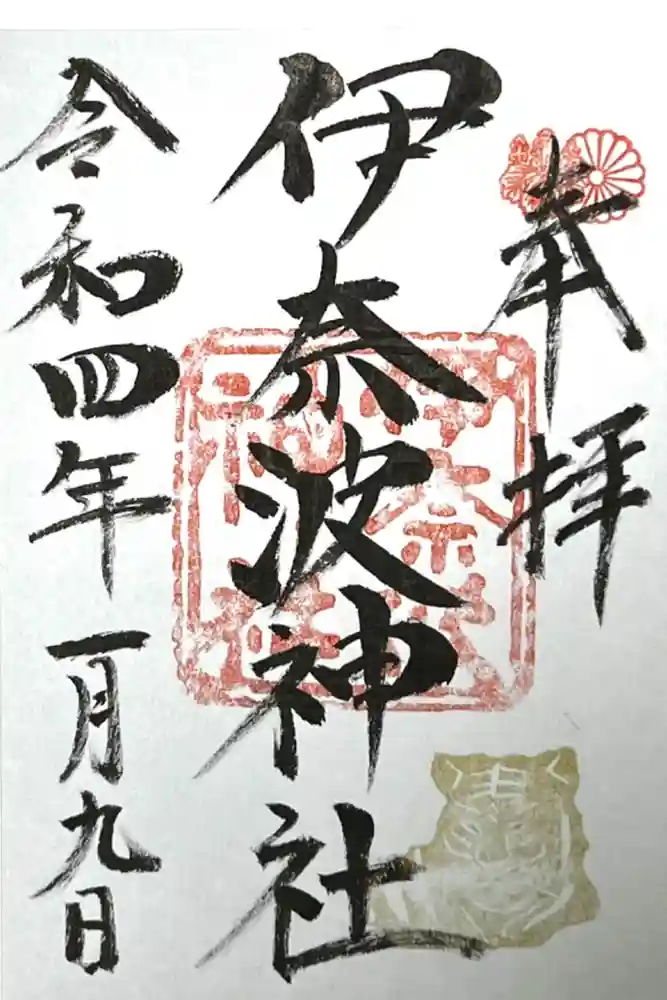 奉拝
伊奈波神社
令和四年一月九日